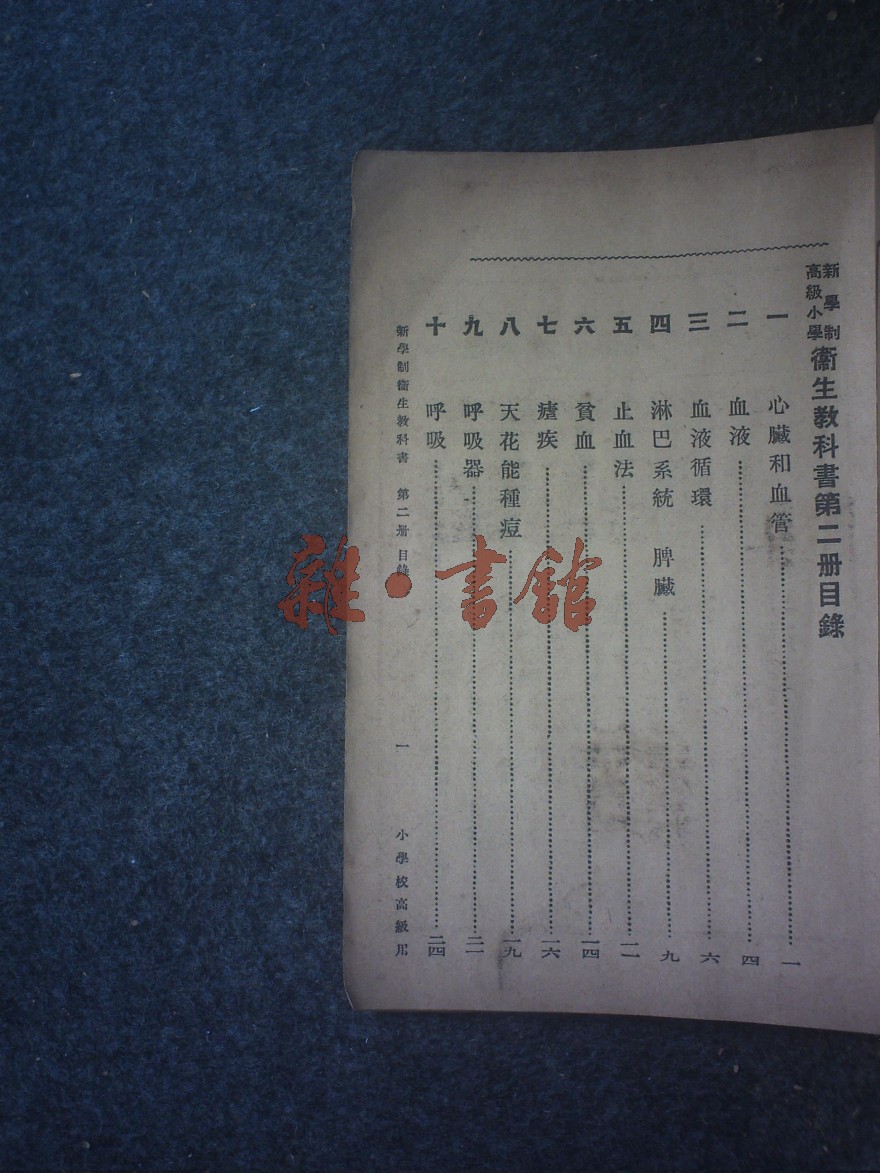 新學制高級小學 衞生教科書第二册目錄
一 心臟和血管 一
二 血液 四
三 血液循環 六
四 淋巴系統 脾臟 九
五 止血法 一一
六 貧血 一四
七 瘧疾 一六
八 天花能種痘 一九
九 呼吸器 二一
十 呼吸 二四
新學制衞生教科書 第二册 目錄 一 小學校高級用
雜·書館